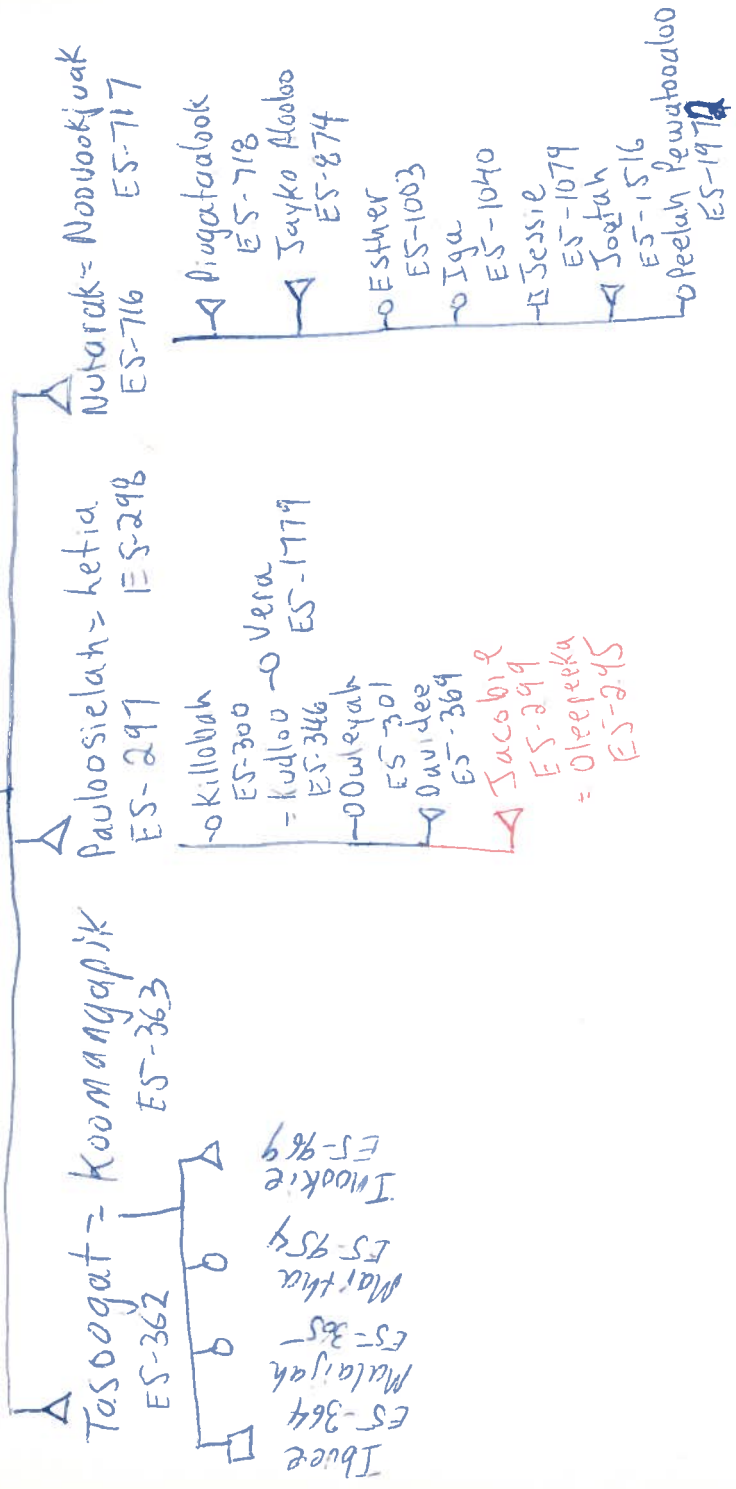 Tasoogat = Koomangapik
E5-362
E5-363
Ibiee
E5-364
Malaijah
E5-365
Martha
E5-954
Inookie
E5-969
Pauloosielah = Letia
E5-297
E5-298
Killobah
E5-300
= Kudloo
E5-346
Vera
E5-1779
Owleyah
E5-301
Davidee
E5-369
Jacobie
E5-299
= Oleepeeka
E5-245
Nutarak = Noovookjuak
E5-716
E5-717
Piugataalook
E5-718
Jayko Alooloo
E5-874
Esther
E5-1003
Iga
E5-1040
Jessie
E5-1079
Joatah
E5-1516
Peelah Pewatooaloo